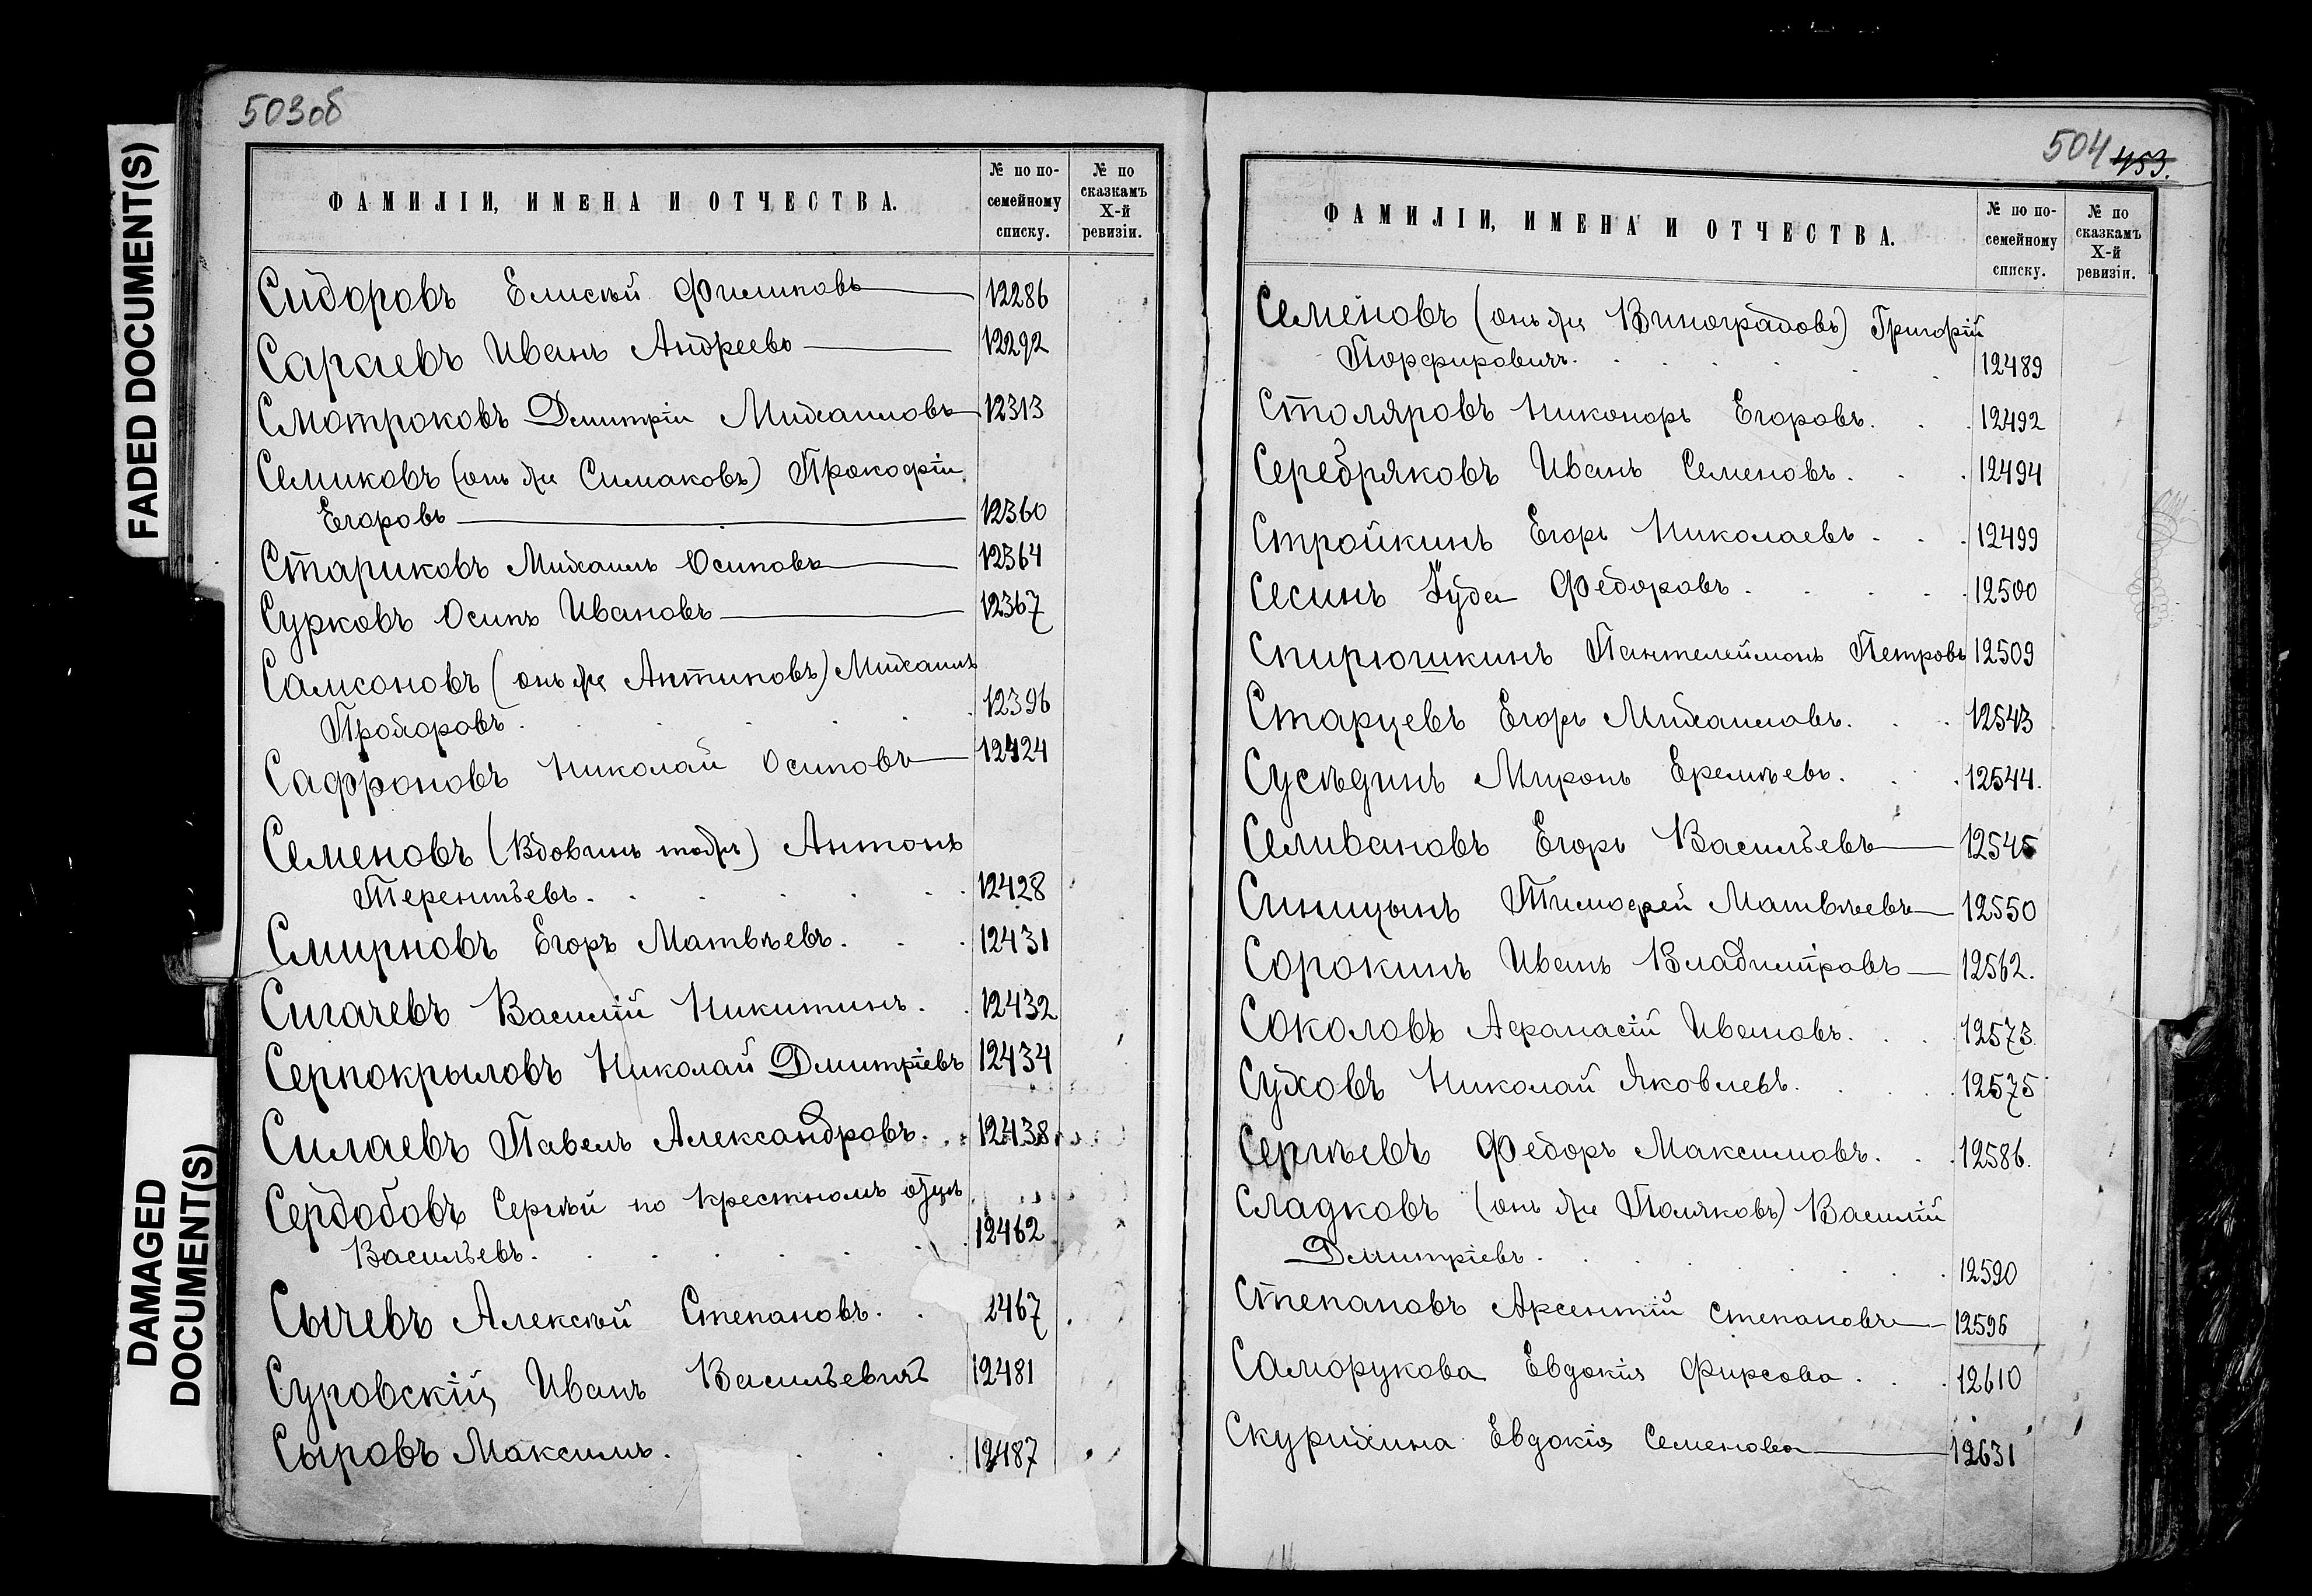 503об
FADED DOCUMENT(S)
DAMAGED
DOCUMENT(S)
ФАМИЛІИ, ИМЕНА И ОТЧЕСТВА.
№ по по-
семейному
списку.
№ по
сказкамъ
X-й
ревизіи.
Сидоровъ Елисѣй Филиповъ 12286
Сараевъ Иванъ Андреевъ 12292
Смотроковъ Дмитрій Михаиловъ 12313
Семиковъ (онъ же Симаковъ) Прокофій
Егоровъ 12360
Стариковъ Михаилъ Осиповъ 12364
Сурковъ Осипъ Ивановъ 12367
Самсоновъ (онъ же Антиповъ) Михаилъ
Прохоровъ. 12396
Сафроновъ Николай Осиповъ 12424
Семеновъ (Вдовинъ тожъ) Антонъ
Терентьевъ. 12428
Смирновъ Егоръ Матвѣевъ. 12431
Сигачевъ Василій Никитинъ. 12432
Серпокрыловъ Николай Дмитріевъ 12434
Силаевъ Павелъ Александровъ. 12438
Сердобовъ Сергѣй по крестномъ отцѣ
Васильевъ. 12462
Сычевъ Алексѣй Степановъ. 2467
Суровскій Иванъ Васильевичъ 12481
Сыровъ Максимъ. 12487
504 453.
ФАМИЛІИ, ИМЕНА И ОТЧЕСТВА.
№ по по-
семейному
списку.
№ по
сказкамъ
X-й
ревизіи.
Семеновъ (онъ же Виноградовъ) Григорій
Порфировичъ. 12489
Столяровъ Никоноръ Егоровъ. 12492
Серебряковъ Иванъ Семеновъ. 12494
Стройкинъ Егоръ Николаевъ. 12499
Сесинъ Іуда Федоровъ. 12500
Спирюшкинъ Пантелеймонъ Петровъ 12509
Старцевъ Егоръ Михаиловъ. 12543
Сусѣдинъ Миронъ Еремѣевъ. 12544.
Селивановъ Егоръ Васильевъ 12545
Синицынъ Тимофей Матвѣевъ 12550
Сорокинъ Иванъ Владиміровъ 12562.
Соколовъ Афанасій Ивановъ. 12573.
Суховъ Николай Яковлевъ. 12575
Сергѣевъ Федоръ Максимовъ. 12586.
Сладковъ (онъ же Поляковъ) Василій
Дмитріевъ. 12590
Степановъ Арсентій Степановъ 12596
Саморукова Евдокія Фирсова. 12610
Скурихина Евдокія Семенова 12631